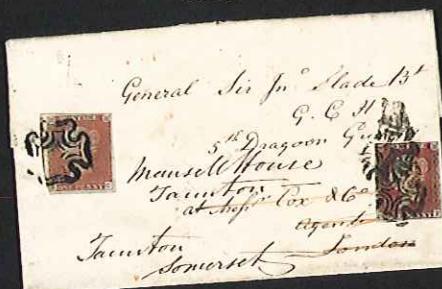 General Sir Jnº Slade Bt
G. C. H
5th Dragoon Gu
Mansell House
Taunton
at Messrs Cox & Co
Agents
London
Taunton
Somerset
ONE PENNY